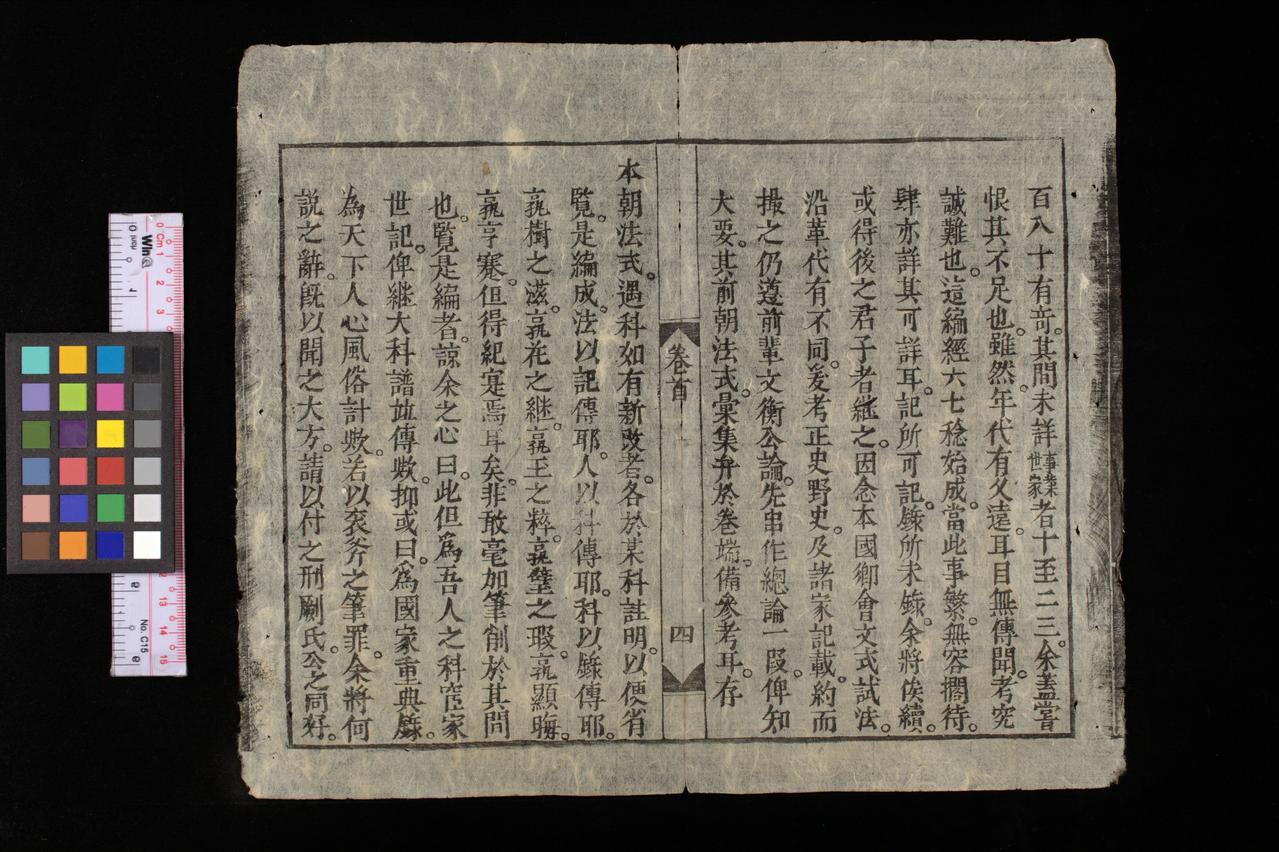 百八十有奇。其間未詳事業世家者十至二三。余蓋嘗
恨其不足也。雖然。年代有久遠。耳目無傳聞。考究
誠難也。這編經六七稔始成。當此事繁。無容擱待。
肆亦詳其可詳耳。記所可記。錄所未錄。余將俟續。
或得後之君子者継之。因念本國鄉會文式試法。
沿革代有不同。爰考正史野史。及諸家記載。約而
撮之仍遵前輩文衡公論。先串作總論一段。俾知
大要。其前朝法式。彙集弁於卷端。備參考耳。存
卷首
四
本朝法式。遇科如有新改者。各於某科註明。以便省
覽。是編成。法以記傳耶。人以科傳耶。科以錄傳耶。
孰樹之滋。孰花之継。孰玉之粹。孰璧之瑕。孰顯晦。
孰亨蹇。但得紀寔焉耳矣。非敢毫加筆削於其間
也。覽是編者。諒余之心曰。此但為吾人之科宦家
世記。俾継大科譜並傳歟。抑或曰。為國家重典錄。
為天下人心風俗計歟。若以袞斧之筆罪。余將何
說之辭。旣以聞之大方。請以付之刑劂氏。公之同好。